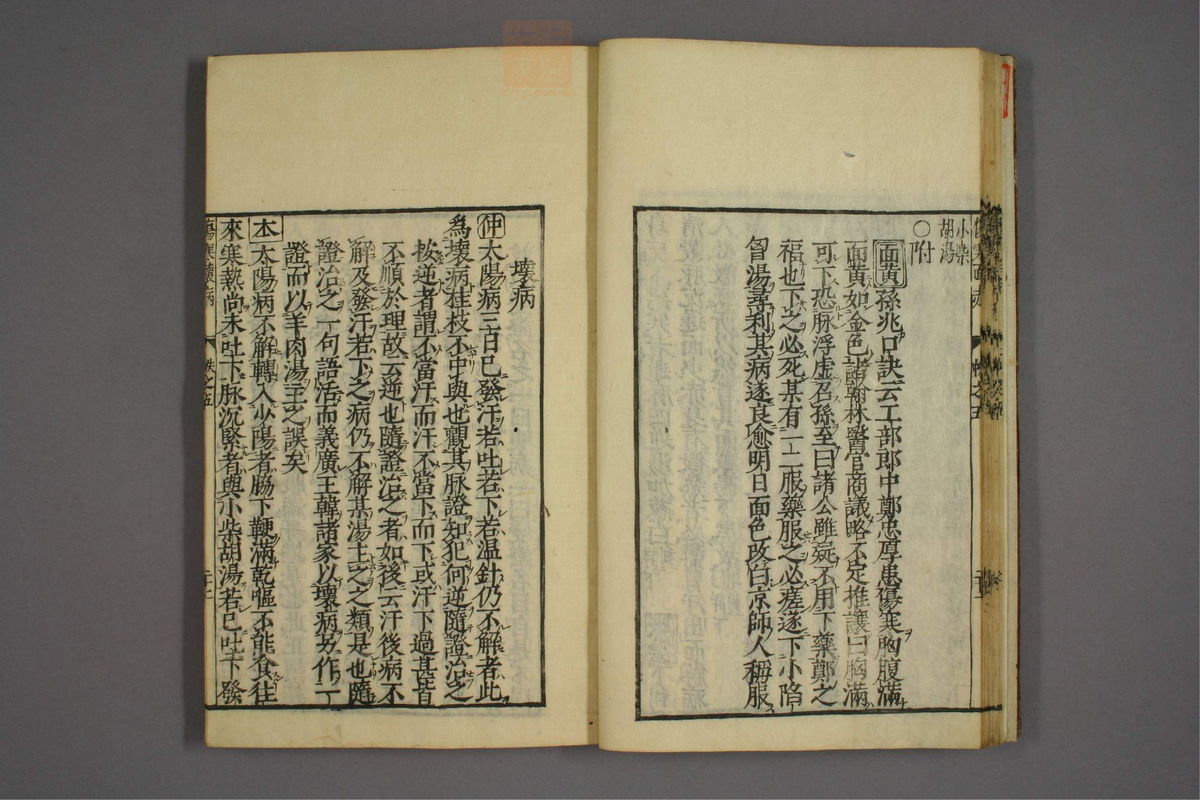 小柴
胡湯
○附
面黃孫兆口訣云工部郎中鄭忠厚患傷寒胸腹滿
面黃如金色諸翰林醫官商議略不定推讓曰胸滿
可下恐脉浮虛召孫至曰諸公雖疑不用下藥鄭之
福也下之必死某有一二服藥服之必瘥遂下小陷
曾湯尋利其病遂良愈明日面色改白京師人稱服
壞病
仲太陽病三日已發汗若吐若下若溫針仍不解者此
為壞病桂枝不中與也觀其脉證知犯何逆隨證治之
按逆者謂不當汗而汗不當下而下或汗下過甚皆
不順於理故云逆也隨證治之者如後云汗後病不
解及發汗若下之病仍不解某湯主之之類是也隨
證治之一句語活而義廣王韓諸家以壞病另作一
證而以羊肉湯主之誤矣
本太陽病不解轉入少陽者脇下鞕滿乾嘔不能食往
來寒熱尚未吐下脉沉緊者與小柴胡湯若已吐下發
傷寒壞病